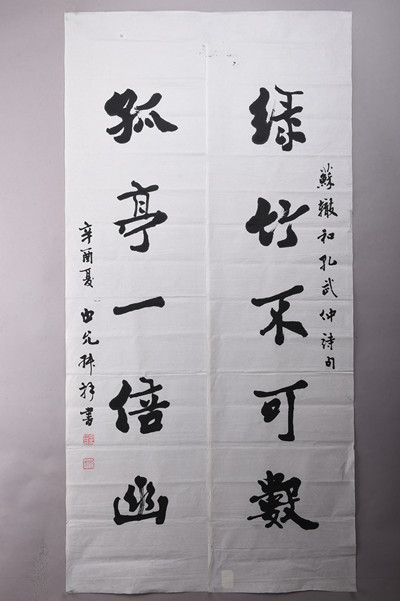 綠竹不可數
蘇轍和孔武仲詩句
孤亭一倍幽
辛酉夏
書